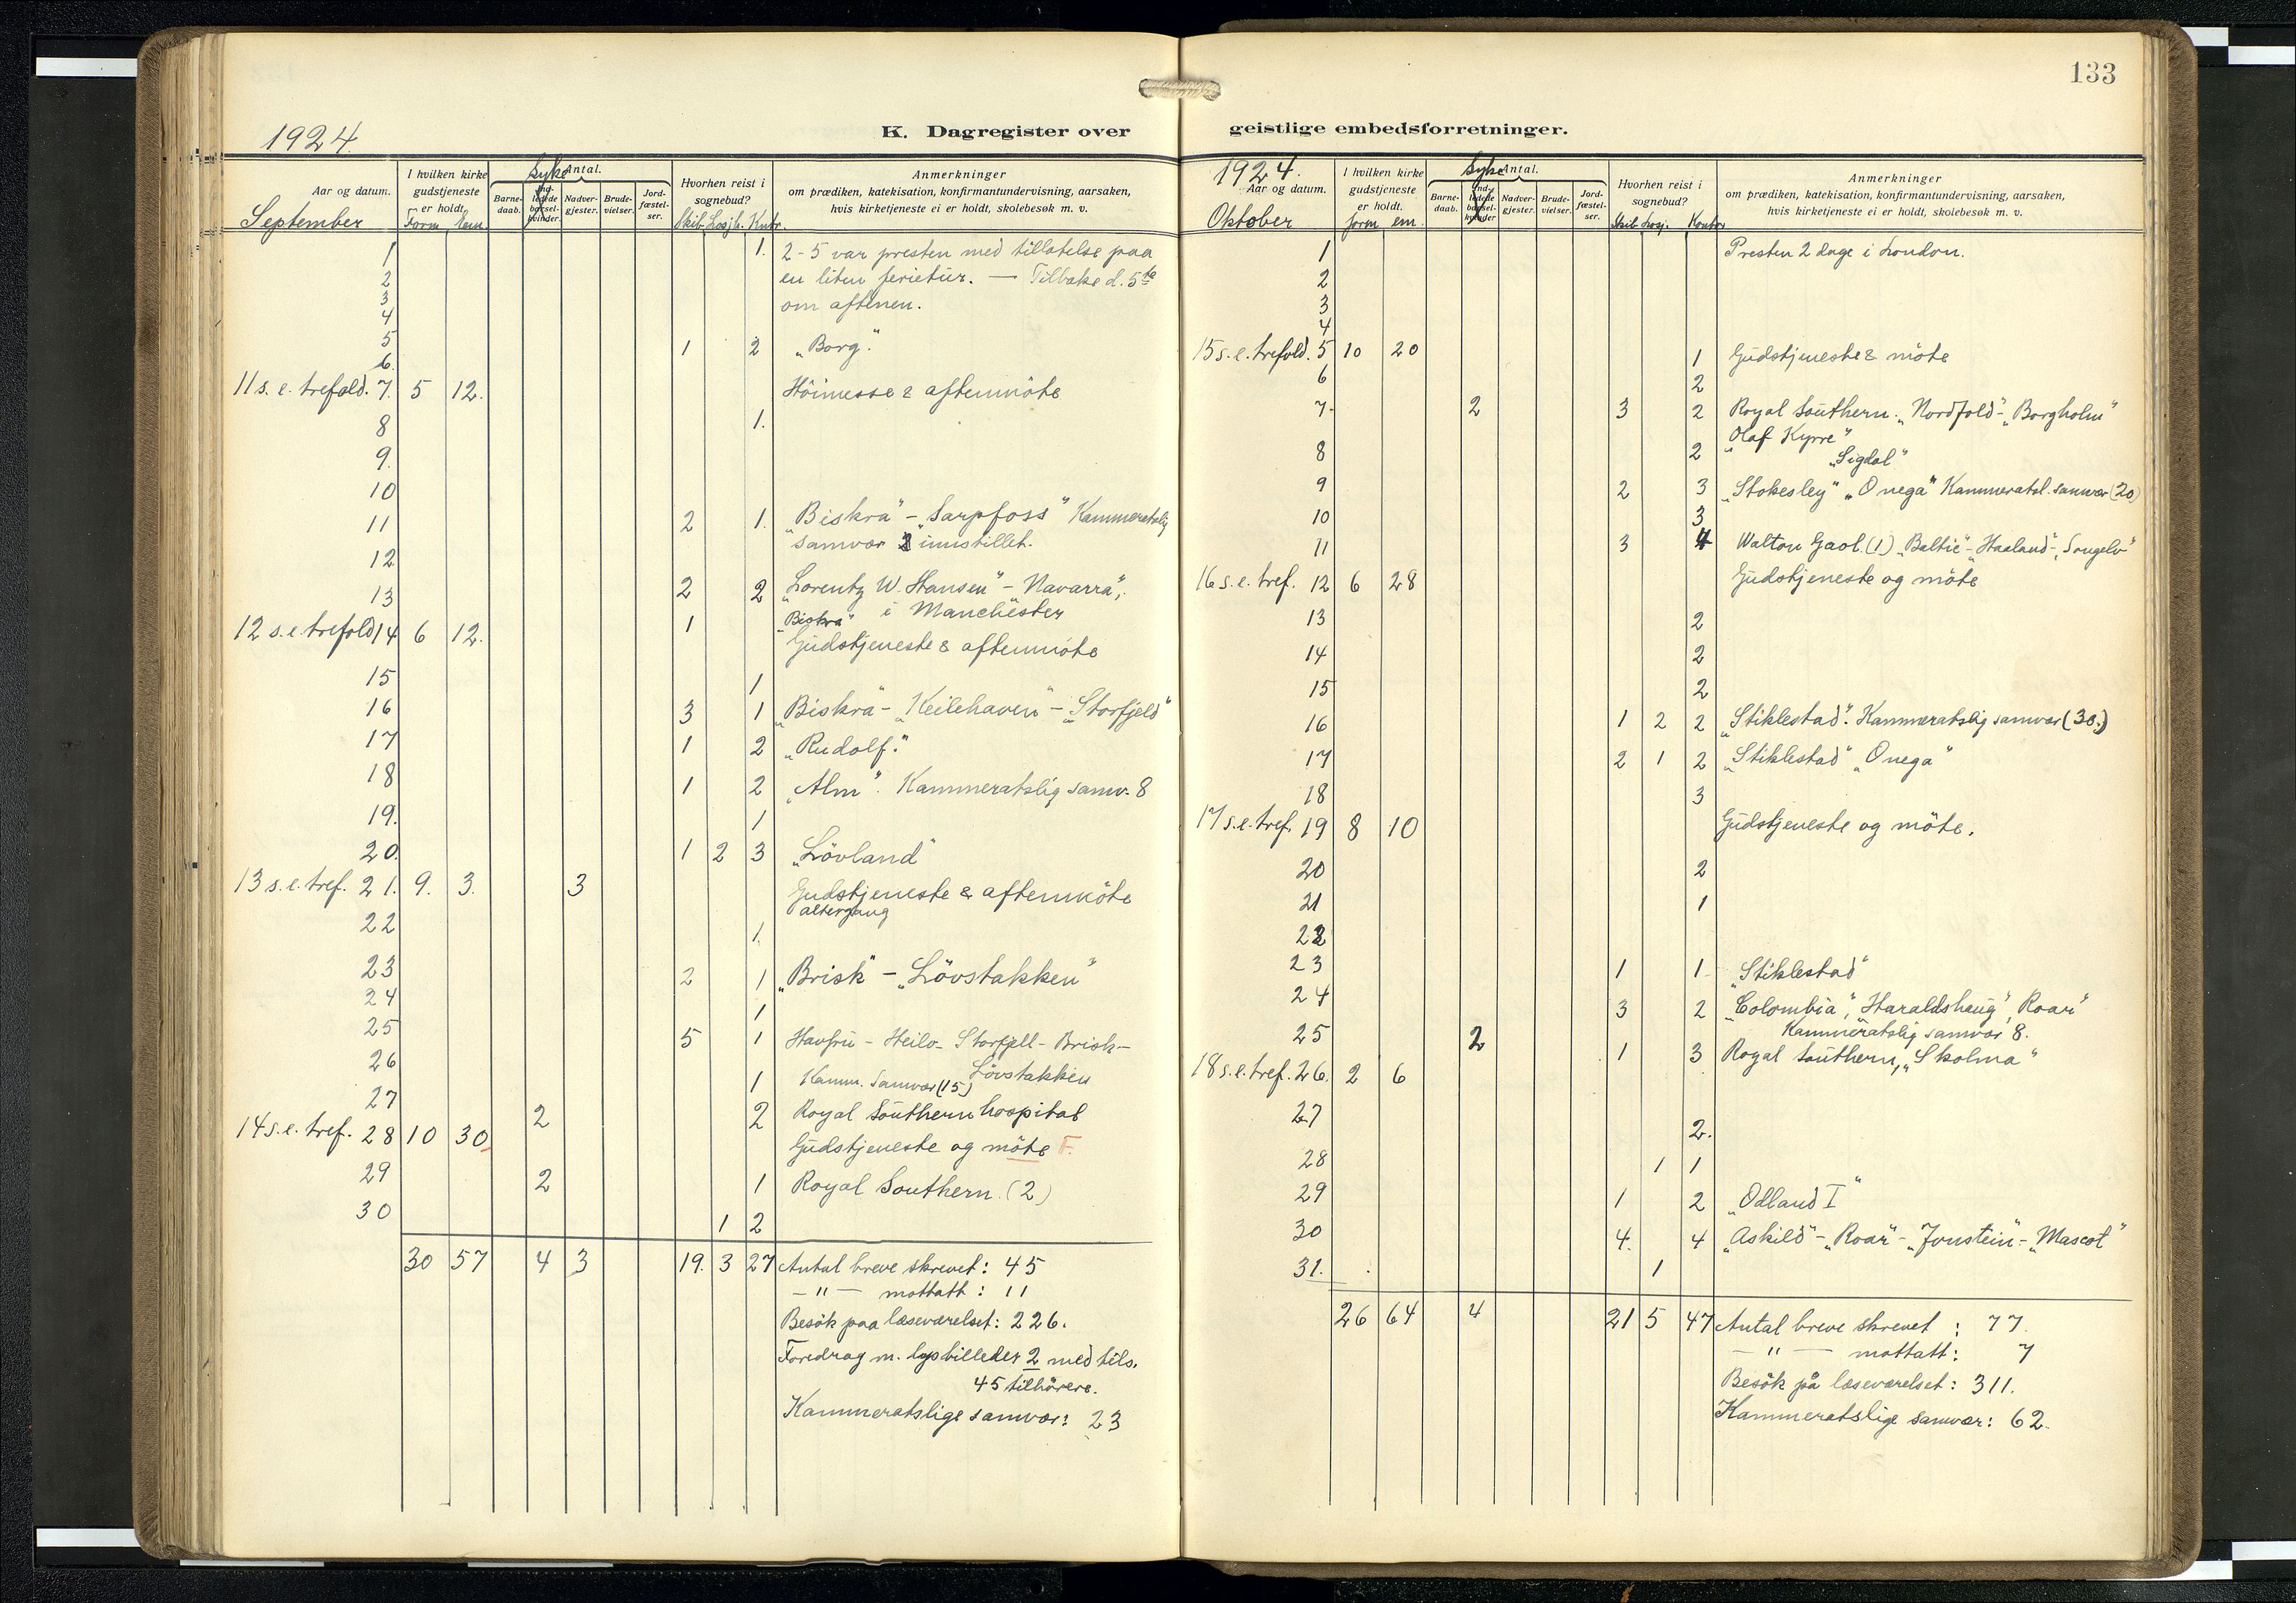 133
1924
K. Dagregister over
Aar og datum.
I hvilken kirke gudstjeneste er holdt.
Syke
Antal.
Barne-daab.
Ind-ledede barsel-kvinder
Nadver-gjester.
Brude-vielser.
Jord-fæstel-ser.
Hvorhen reist i sognebud?
Anmerkninger
om prædiken, katekisation, konfirmantundervisning, aarsaken,
hvis kirketjeneste ei er holdt, skolebesøk m. v.
September Form. Em. Skib. Losjh. Kntr.
1 1. 2-5 var presten med tillatelse paa
2 en liten ferietur. — Tilbake d. 5te
3 om aftenen.
4
5 1 2 „Borg".
6.
11 s. e. trefold. 7. 5 12. Höimesse & aftenmöte
8 1.
9.
10
11 2 1. „Biskra" - „Sarpfoss" Kammeratslig
samvær innstillet.
12
13 2 2 „Lorentz W. Hansen" - Navarra",
1 „Biskra" i Manchester
12 s. e. trefold 14 6 12. Gudstjeneste & aftenmöte
15 1
16 3 1 „Biskra" - „Keilehaven" - „Storfjeld"
17 1 2 „Rudolf."
18 1 2 „Alm". Kammeratslig samv. 8
19. 1
20. 1 2 3 „Lövland"
13 s. e. tref. 21. 9. 3. 3 Gudstjeneste & aftenmöte
altergang
22 1.
23 2 1 „Brisk" - „Lövstakken"
24 1
25 5 1 Havfru - Heilo - Storfjell - Brisk -
Lövstakken
26 1 Kamm. samvær (15)
27 2 2 Royal Southern hospital
14 s. e. tref. 28 10 30 Gudstjeneste og möte F.
29 2 1 Royal Southern (2)
30 1 2
30 57 4 3 19. 3 27 Antal breve skrevet: 45
— " — mottatt: 11
Besök paa læseværelset: 226.
Foredrag m. lysbilleder 2 med tils.
45 tilhörere.
Kammeratslige samvær: 23
geistlige embedsforretninger.
1924.
Aar og datum.
I hvilken kirke gudstjeneste er holdt.
Syke
Antal.
Barne-daab.
Ind-ledede barsel-kvinder
Nadver-gjester.
Brude-vielser.
Jord-fæstel-ser.
Hvorhen reist i sognebud?
Anmerkninger
om prædiken, katekisation, konfirmantundervisning, aarsaken,
hvis kirketjeneste ei er holdt, skolebesøk m. v.
Oktober form em. Skib Losj. Kontor
1 Presten 2 dage i London.
2
3
4
15 s. e. trefold. 5 10 20 1 Gudstjeneste & möte
6 2
7. 2 3 2 Royal Southern. „Nordfold" - „Borgholm"
„Olaf Kyrre"
8 2 „Sigdal"
9 2 3 „Stokesley" „Onega" Kammeratsl. samvær (20)
10 3
11 3 4 Walton Gaol. (1) „Baltic" - „Haaland" - „Songelv"
16 s. e. tref. 12 6 28 Gudstjeneste og möte
13 2
14 2
15 2
16 1 2 2 „Stiklestad". Kammeratslig samvær (30.)
17 2 1 2 „Stiklestad" „Onega"
18 3
17 s. e. tref. 19 8 10 Gudstjeneste og möte.
20 2
21 1
22
23 1 1 „Stiklestad"
24 3 2 „Colombia", „Haraldshaug", „Roar"
Kammeratslig samvær 8.
25 2 1 3 Royal Southern, „Skolma"
18 s. e. tref. 26. 2 6
27 2.
28 1 1
29 1 2 „Odland I"
30 4. 4 „Askild" - „Roar" - „Jonstein" - „Mascot"
31. 1
26 64 4 21 5 47 Antal breve skrevet : 77.
— " — mottatt: 7
Besök på læseværelset: 311.
Kammeratslige samvær: 62.